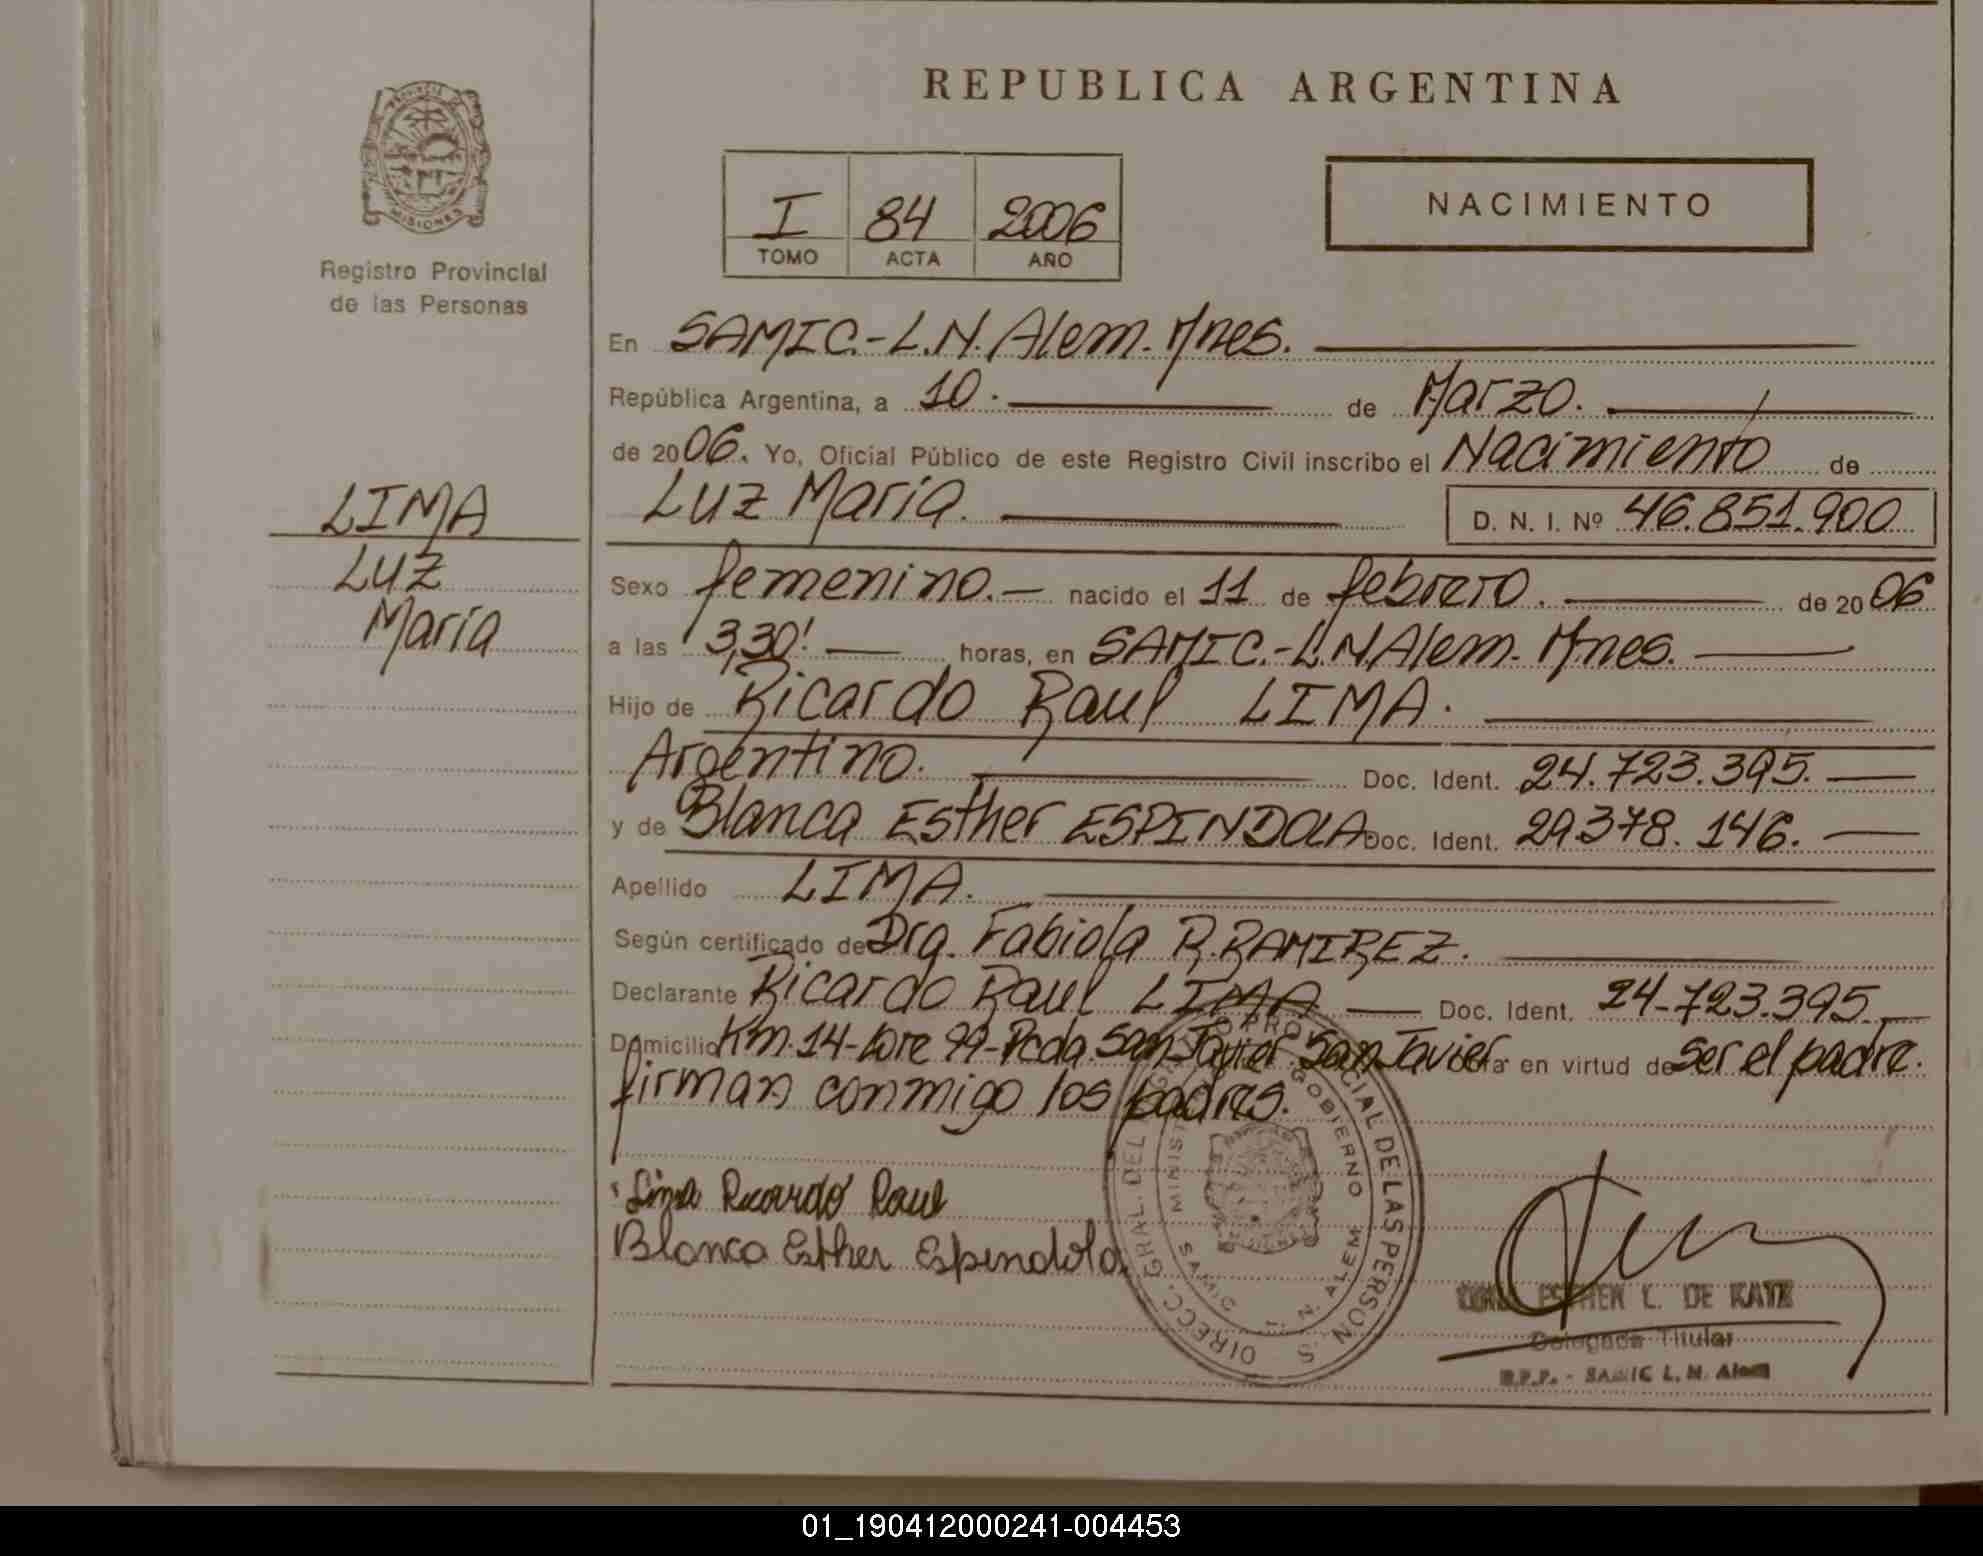 REPUBLICA ARGENTINA
PROVINCIA DE
MISIONES
Registro Provincial
de las Personas
I 84 2006
TOMO ACTA AÑO
NACIMIENTO
En SAMIC.-L.N. Alem. Mnes.
República Argentina, a 10. de Marzo.
de 2006. Yo, Oficial Público de este Registro Civil inscribo el Nacimiento de
Luz María. D. N. I. Nº 46.851.900
LIMA
Luz
María
Sexo femenino.- nacido el 11 de febrero. de 2006
a las 3,30'. horas, en SAMIC.-L.N.Alem. Mnes.
Hijo de Ricardo Raul LIMA.
Argentino. Doc. Ident. 24.723.395.
y de Blanca Esther ESPINDOLA. Doc. Ident. 29.378.146.
Apellido LIMA.
Según certificado de Dra. Fabiola R. RAMIREZ.
Declarante Ricardo Raul LIMA Doc. Ident. 24-723.395.
Domicilio Km. 14- 99- San Javier San Javier. en virtud de Ser el padre.
firman conmigo los padres.
Lima Ricardo Raul
Blanca Esther Espindola
DIRECC. GRAL. DEL PROVINCIAL DE LAS PERSONAS
GOBIERNO
SAMIC L. N. ALEM
ESTHER L. DE KATZ
Delegada Titular
R.P.P. - SAMIC L. N. Alem
01_190412000241-004453